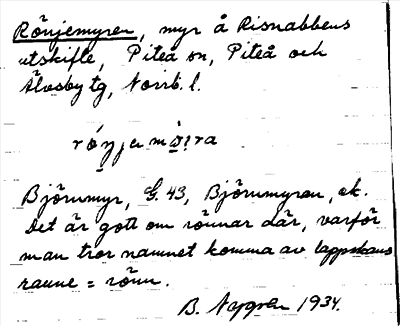 Rönjemyren, myr å Risnabbens
utskifte, Piteå sn, Piteå och
Älvsby tg, Norrb. l.
Björnmyr, G. 43, Björnmyren, ek.
Det är gott om rönnar där, varför
man tror namnet komma av lappskans
raune = rönn.
B. Nygren 1934.